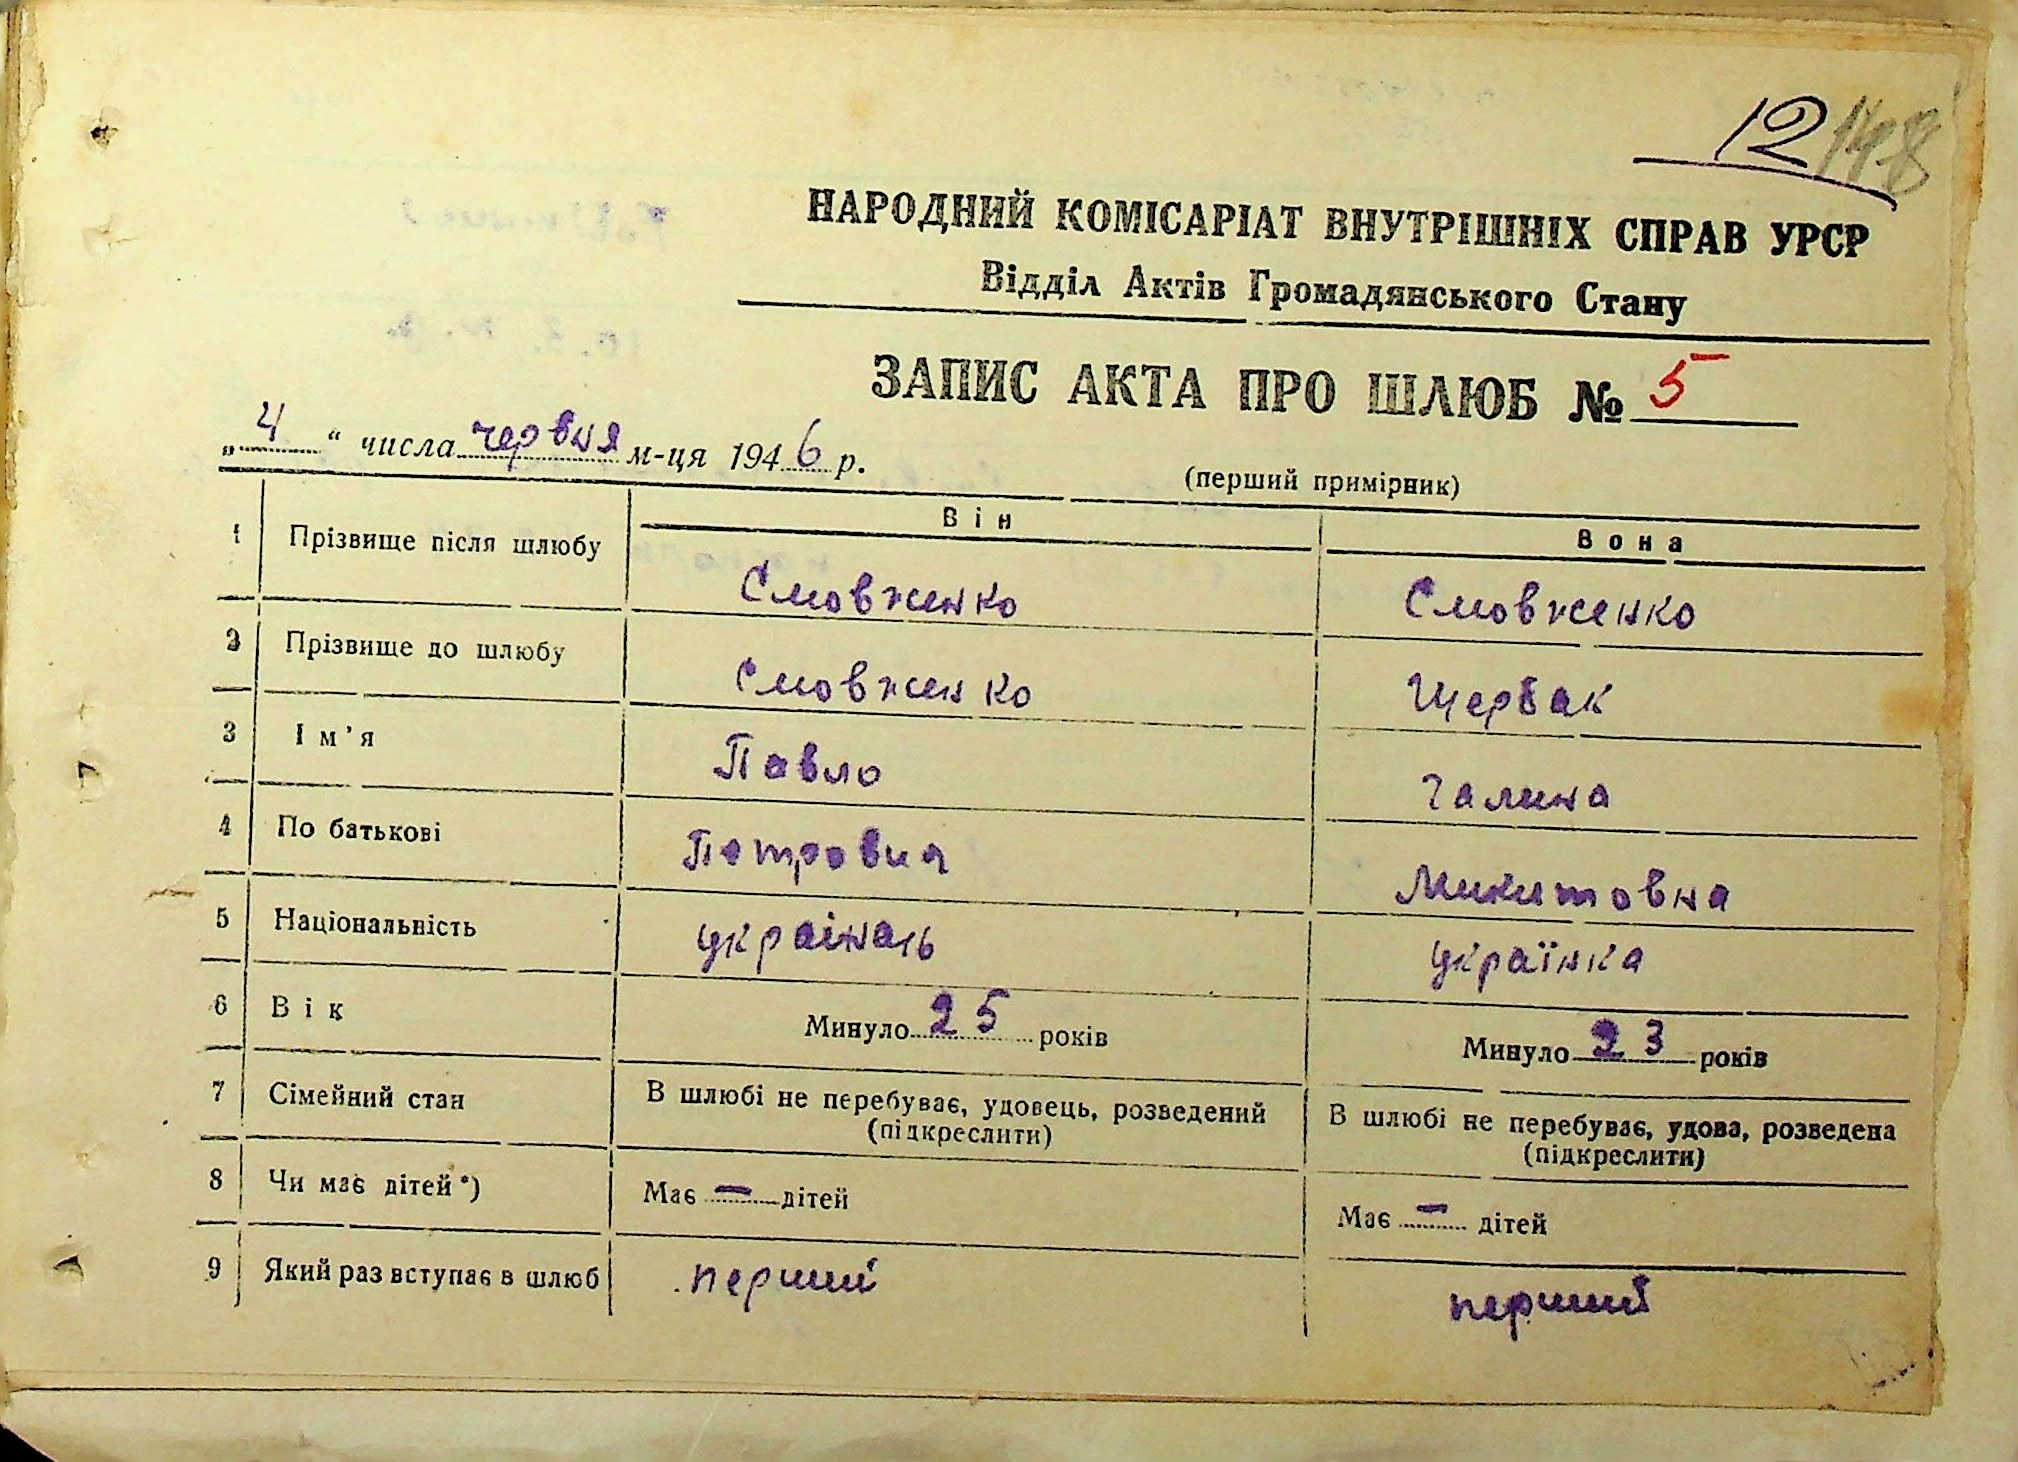 12 148
НАРОДНИЙ КОМІСАРІАТ ВНУТРІШНІХ СПРАВ УРСР
Відділ Актів Громадянського Стану
ЗАПИС АКТА ПРО ШЛЮБ № 5
„4“ числа червня м-ця 1946 р.
(перший примірник)
Він Вона
1 Прізвище після шлюбу Смовженко Смовженко
2 Прізвище до шлюбу Смовженко Щербак
3 Ім'я Павло Галина
4 По батькові Петрович Микитовна
5 Національність українець українка
6 Вік Минуло 25 років Минуло 23 років
7 Сімейний стан В шлюбі не перебуває, удовець, розведений В шлюбі не перебуває, удова, розведена
(підкреслити) (підкреслити)
8 Чи має дітей*) Має – дітей Має – дітей
9 Який раз вступає в шлюб перший перший